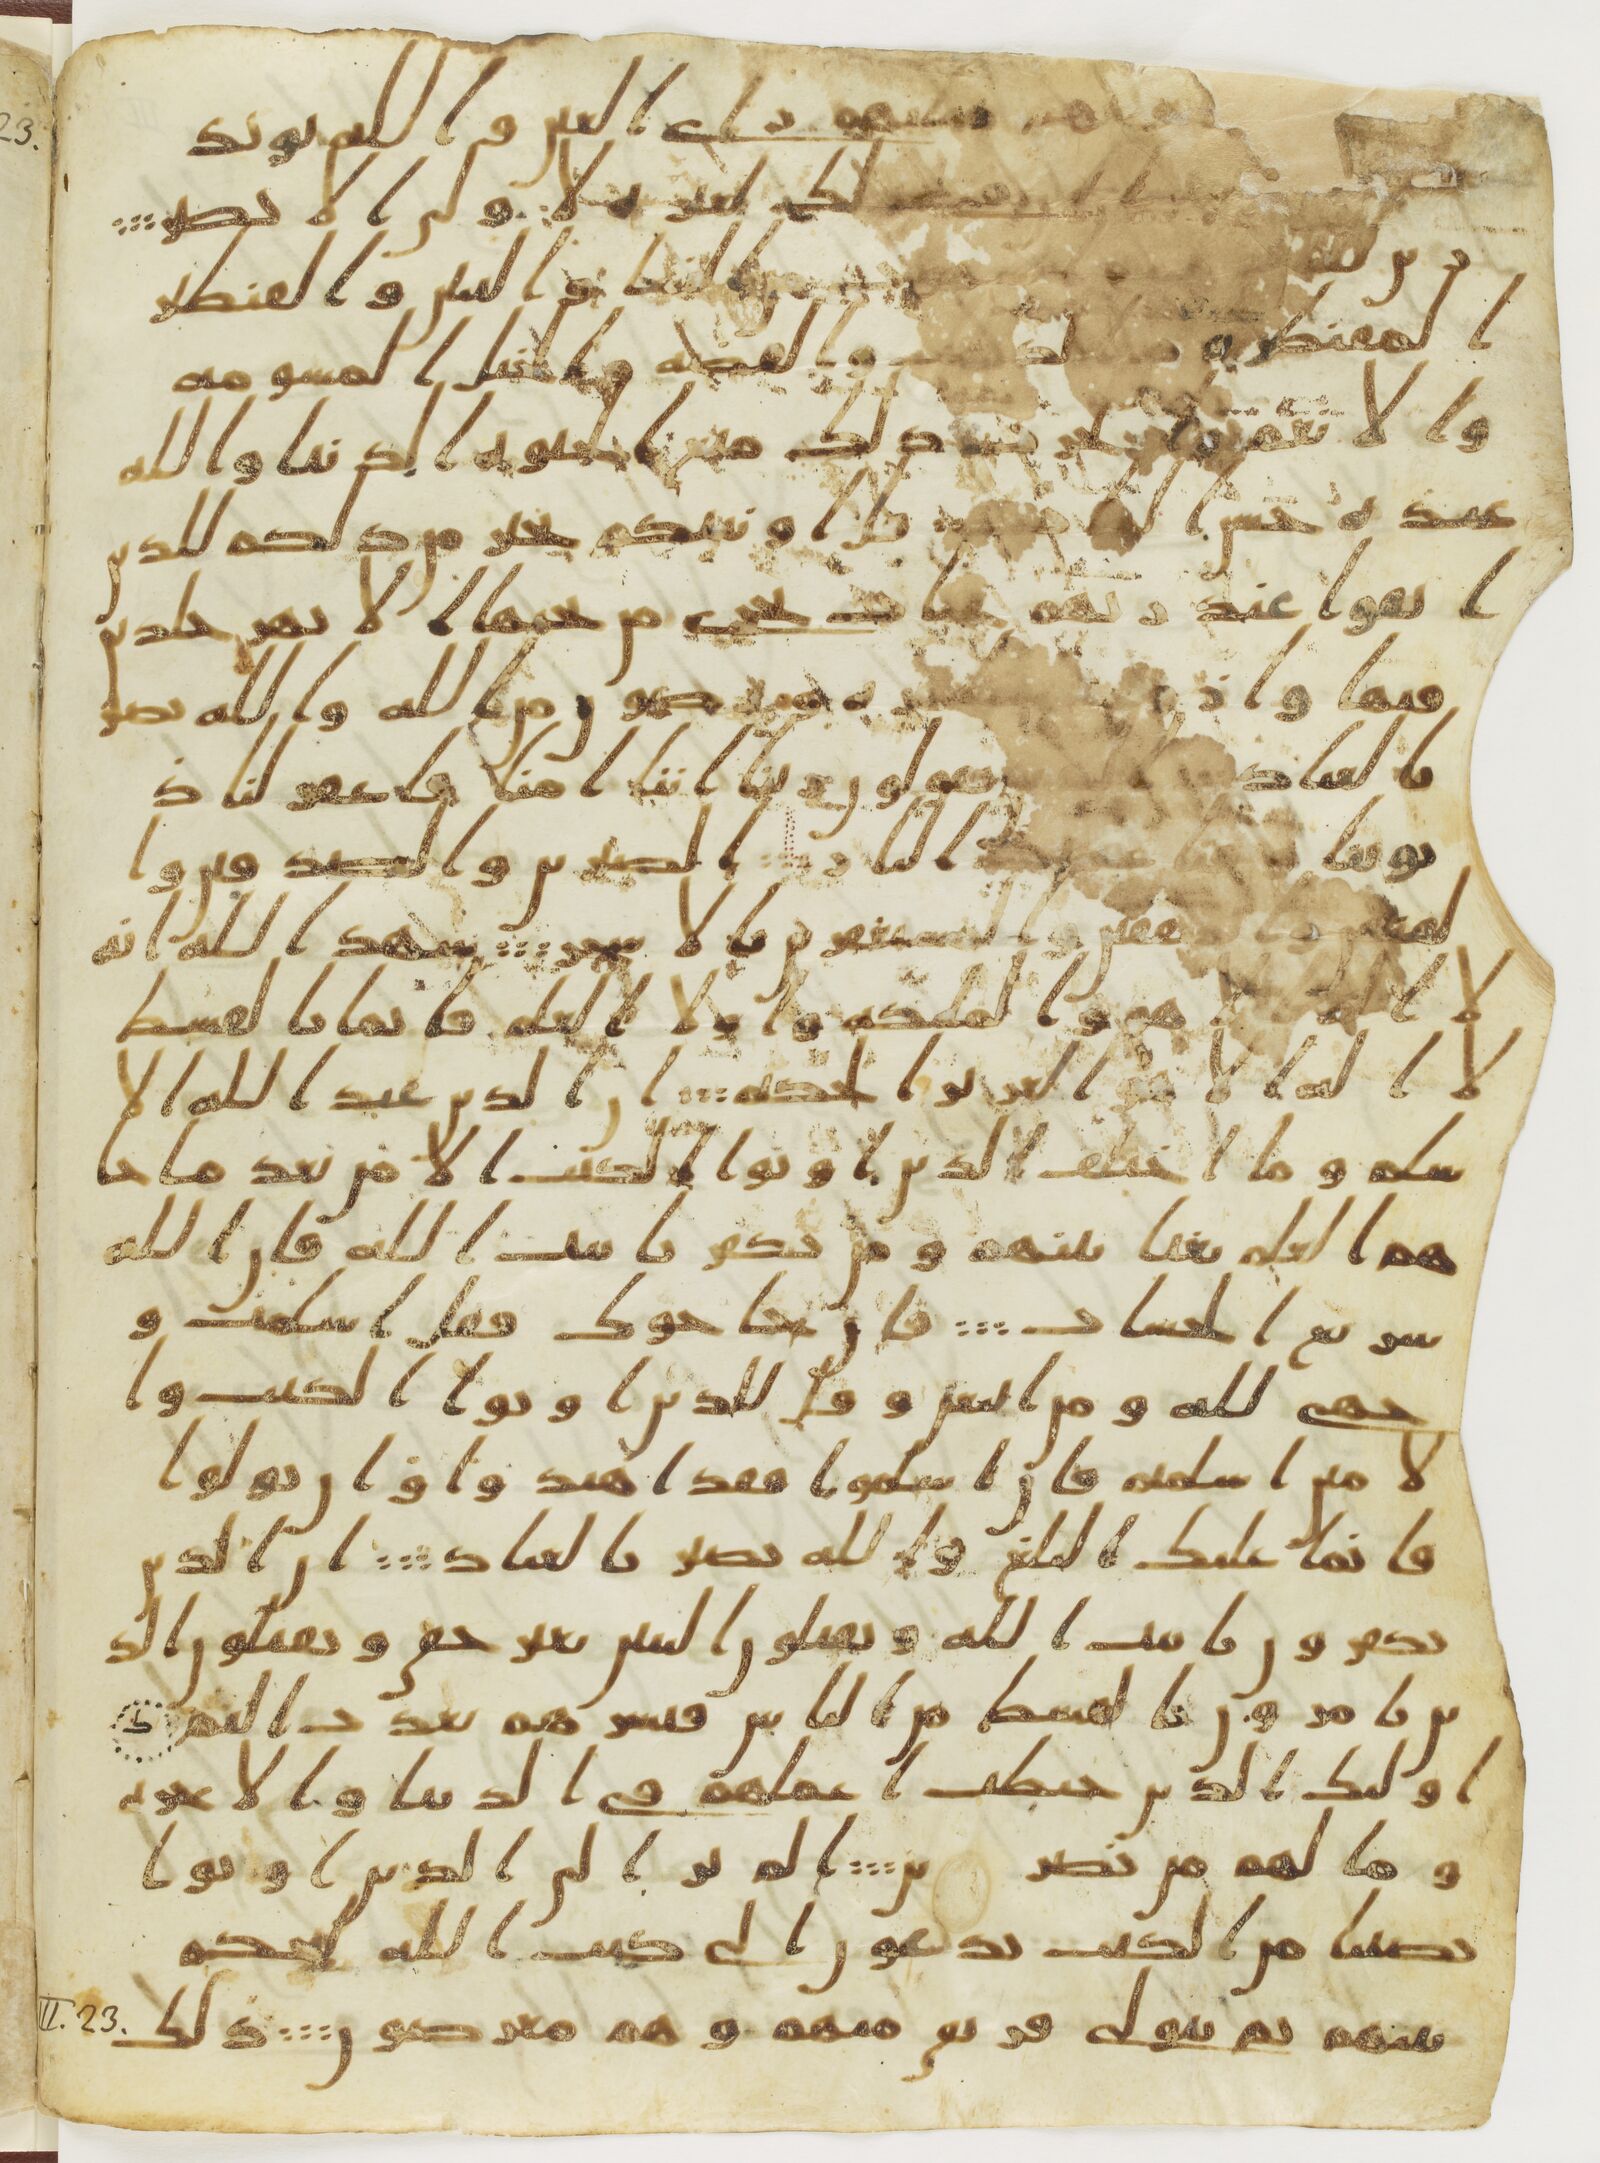 مثليهم راى العين والله يويد
لك لعبره لاولى الابصر ⁝
زين للنا النسا والبنين والقنطير
المقنطره من الذهب والفضه والخيل المسومه
والانعم والحرث ذلك متع الحيوه الدنيا والله
عنده حسن الماب قل اونبيكم بخير من ذلكم للذين
اتقوا عند ربهم جنت تجرى من تحتها الانهر خلدين
فيها واز ورضون من الله والله بصير
بالعباد يقولون ربنا اننا امنا فاغفر لنا ذ
نوبنا وقنا عذاب النار ⁝ الصبرين والصدقين وا
لقنتين والمنفقين والمستغفرين بالاسحر ⁝ شهد الله انه
لا اله الا هو والملئكه واولوا العلم قايما بالقسط
لا اله الا هو العزيز الحكيم ⁝ ان الدين عند الله الا
سلم وما اختلف الذين اوتوا الكتب الا من بعد ما جا
هم العلم بغيا بينهم ومن يكفر بايت الله فان الله
سريع الحساب ⁝ فان حاجوك فقل اسلمت و
جهى لله ومن اتبعن وقل للذين اوتوا الكتب وا
لامين اسلمتم فان اسلموا فقد اهتدوا وان تولوا
فانما عليك البلغ والله بصير بالعباد ⁝ ان الذين
يكفرون بايت الله ويقتلون النبين بغير حق ويقتلون الذ
ين يامرون بالقسط من الناس فبشرهم بعذب اليم
اوليك الذين حبطت اعملهم في الدنيا والاخره
وما لهم من نصرين ⁝ الم تر الى الذين اوتوا
نصيبا من الكتب يدعون الى كتب الله ليحكم
بينهم ثم يتولى فريق منهم وهم معرضون ⁝ ذلك
III. 23.